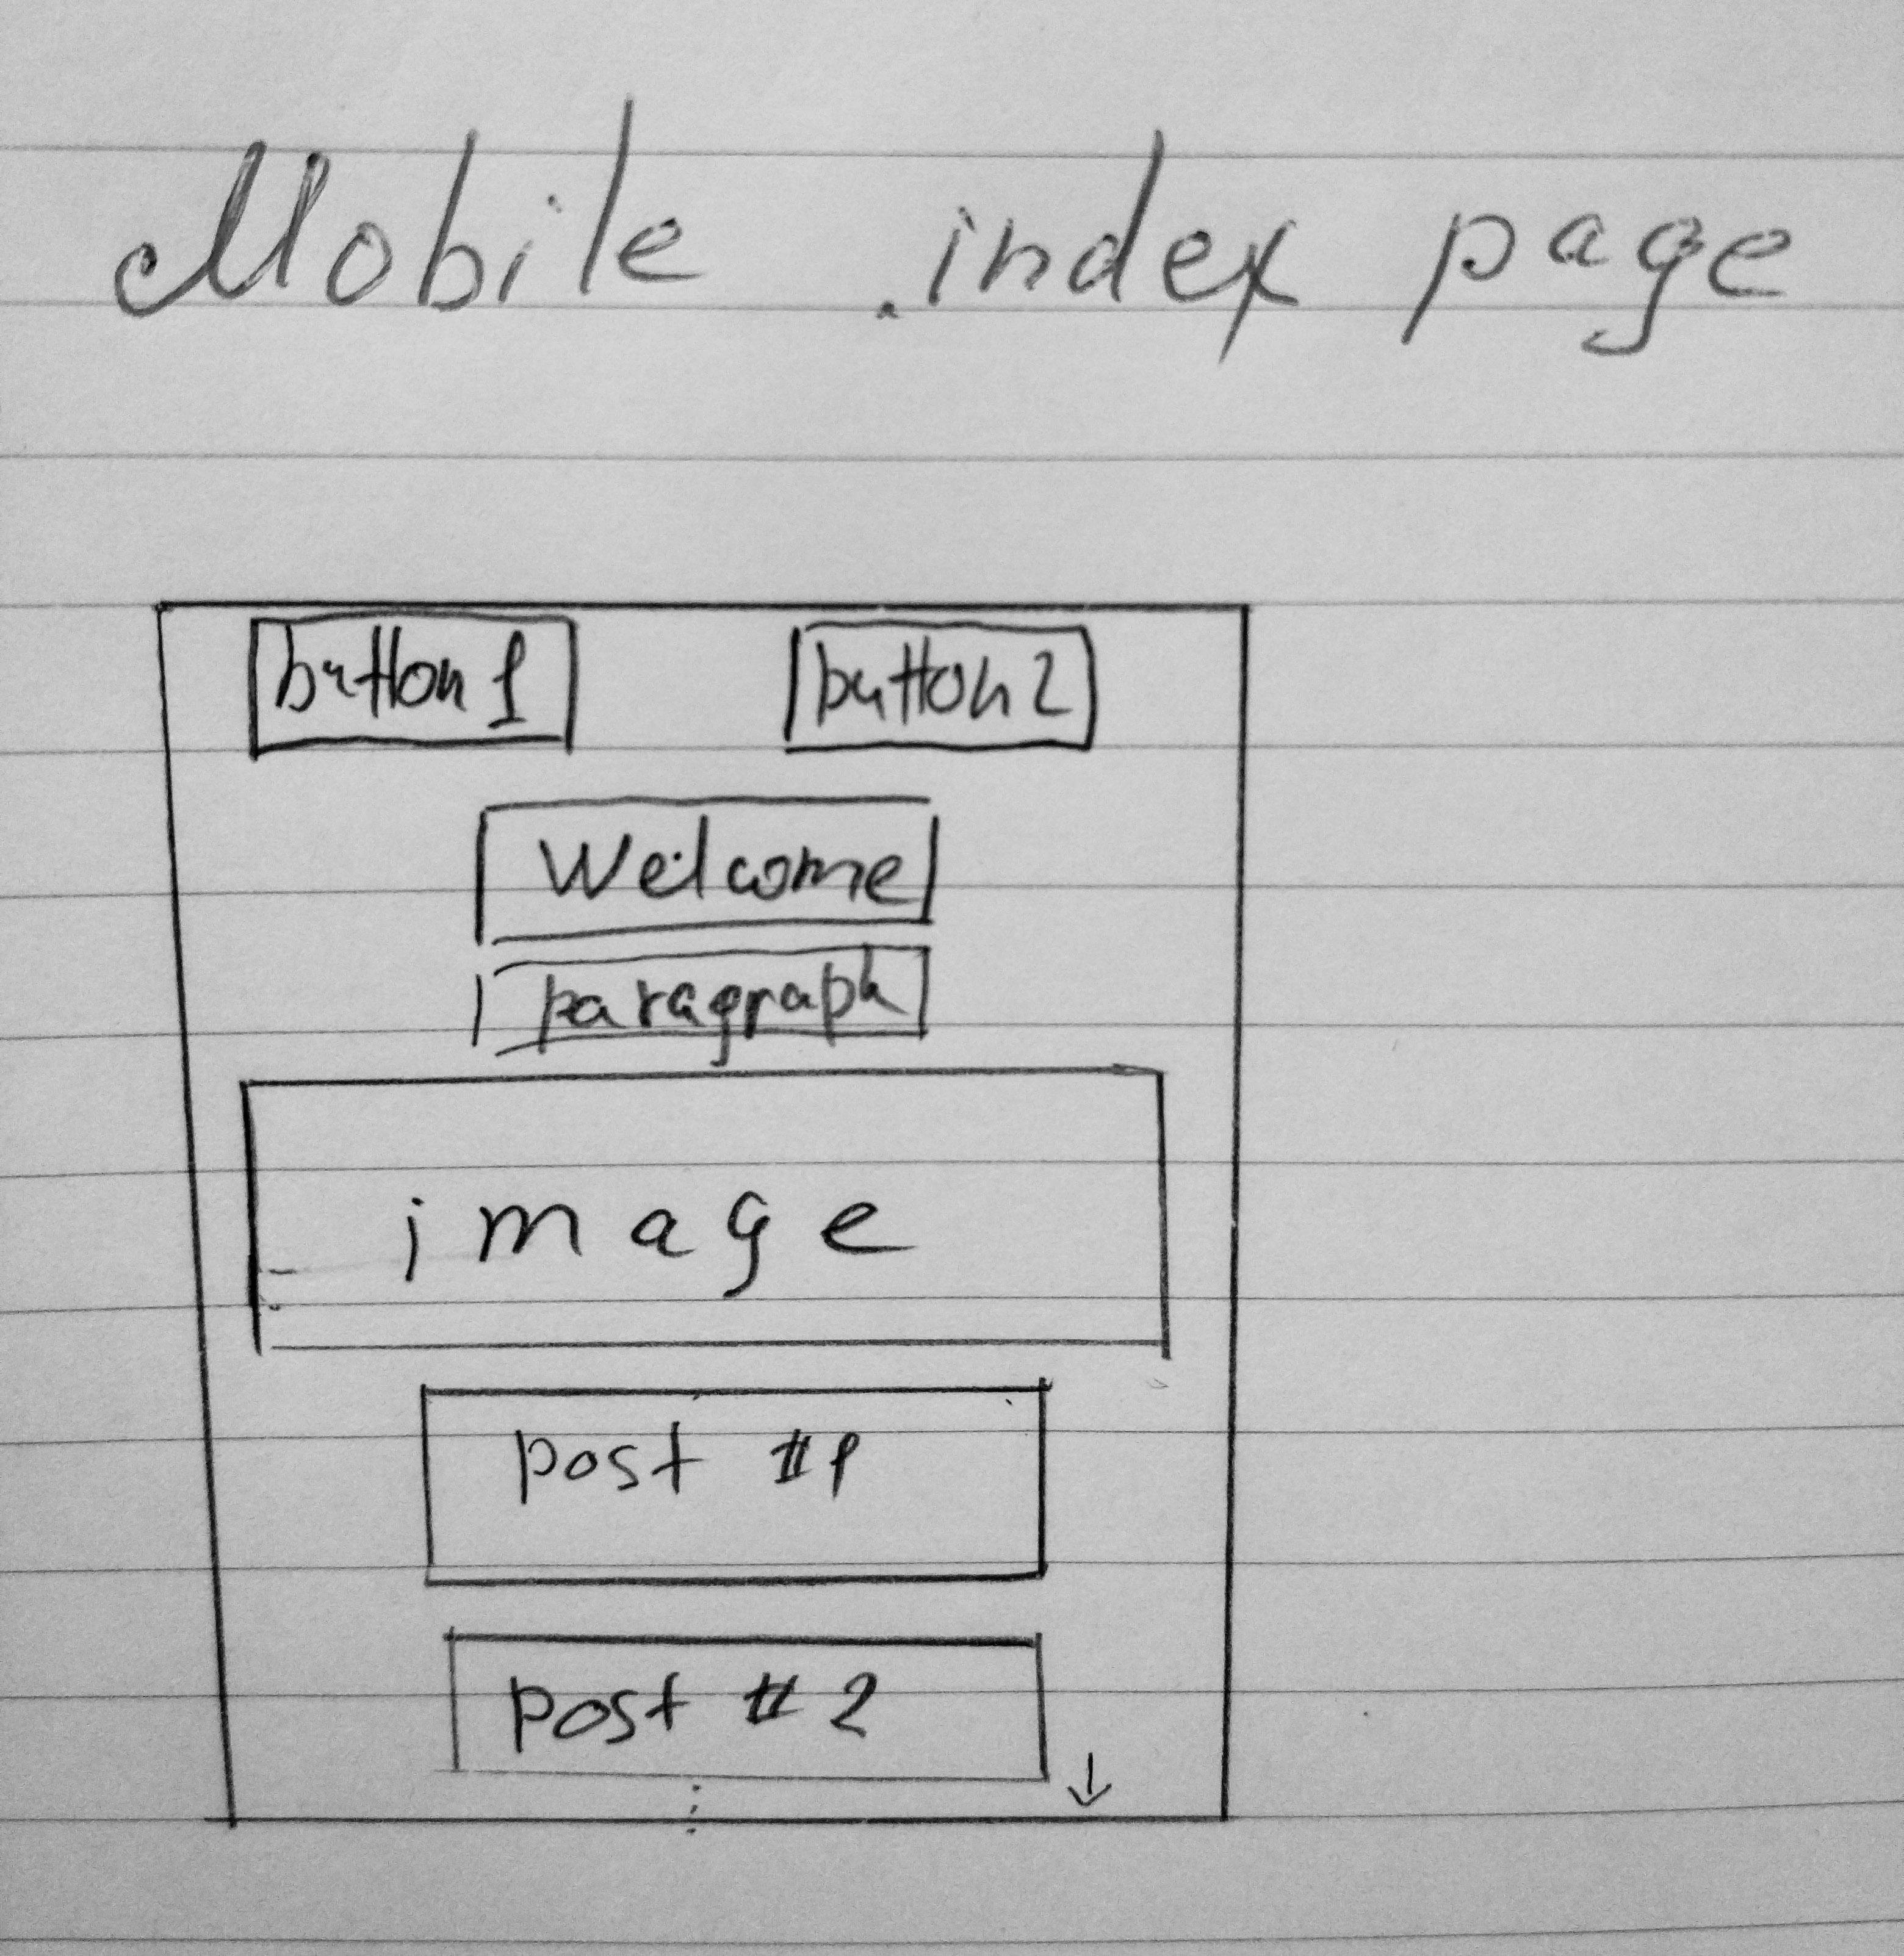 Mobile index page
button 1 button 2
Welcome
paragraph
image
post #1
post #2